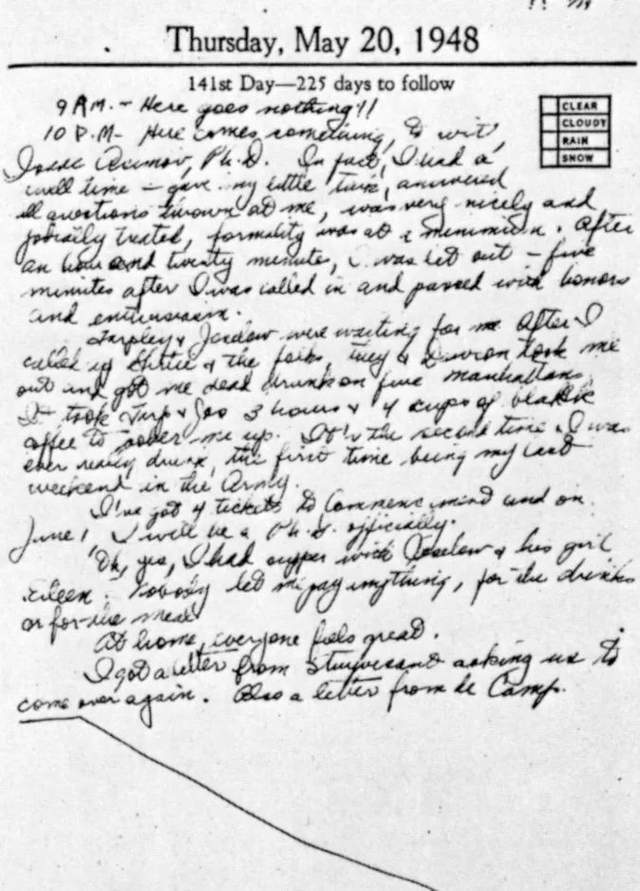 Thursday, May 20, 1948
141st Day—225 days to follow
CLEAR
CLOUDY
RAIN
SNOW
9 A.M. - Here goes nothing!!
10 P.M. Here comes something, to wit,
Isaac Asimov, Ph.D. In fact, I had a
swell time - gave my little talk, answered
all questions thrown at me, was very nicely and
jovially treated, formality was at a minimum. After
an hour and twenty minutes, I was let out - five
minutes after I was called in and passed with honors
and enthusiasm.
Tarpley & Joselow were waiting for me. After I
called up Gertie & the folks, they & Dawson took me
out and got me dead drunk on five manhattans.
It took Tarp & Jos 3 hours & 4 cups of black
coffee to sober me up. It's the second time I was
ever really drunk, the first time being my last
weekend in the Army.
I've got 4 tickets to Commencement and on
June 1 I will be a Ph.D. officially.
Oh, yes, I had supper with Joselow & his girl
Eileen. Nobody let me pay anything, for the drinks
or for the meal.
At home, everyone feels great.
I got a letter from Stuyvesant asking us to
come over again. Also a letter from de Camp.